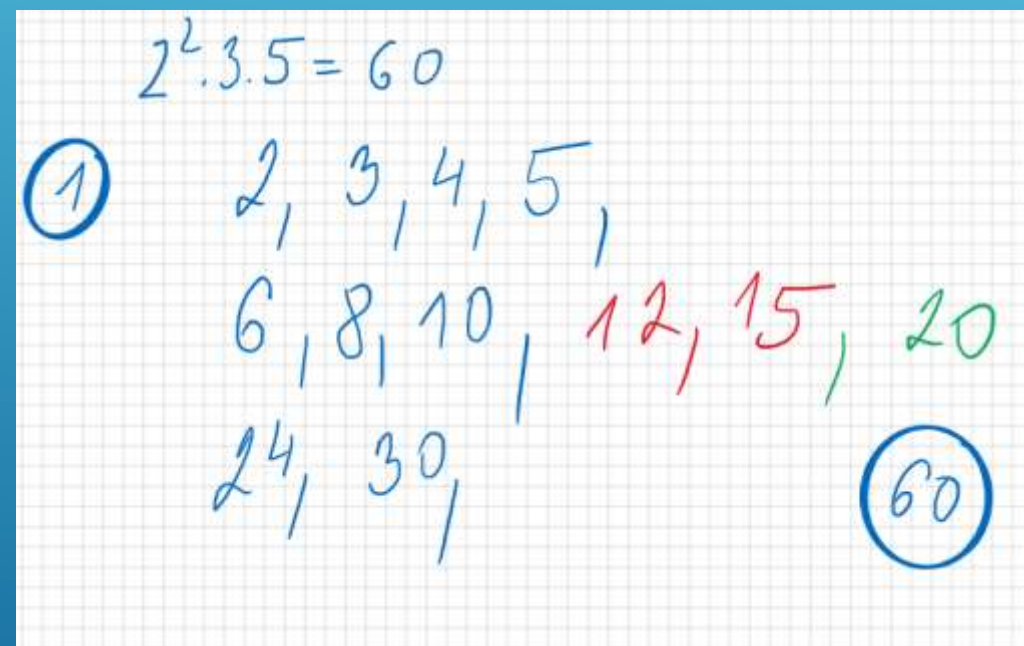 2².3.5 = 60
1 2, 3, 4, 5,
6, 8, 10, 12, 15, 20
24, 30,
60